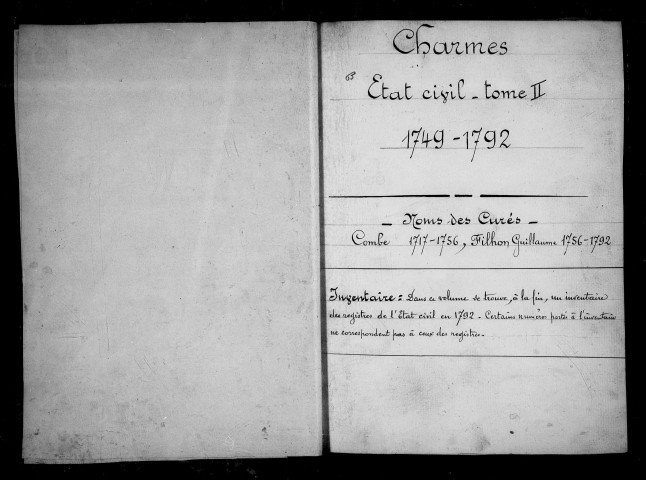 Charmes
Etat civil - tome II
1749-1792
- Noms des Curés -
Combe 1717-1756, Filhon Guillaume 1756-1792
Inventaire = Dans ce volume se trouve, à la fin, un inventaire
des registres de l'Etat civil en 1792 - Certains numéros porté à l'inventaire
ne correspondent pas à ceux des registres -